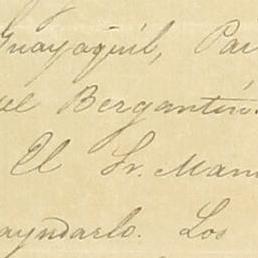 Guayaquil, Par
el Bergantín
El Sr. Man
ayudarlo. Los